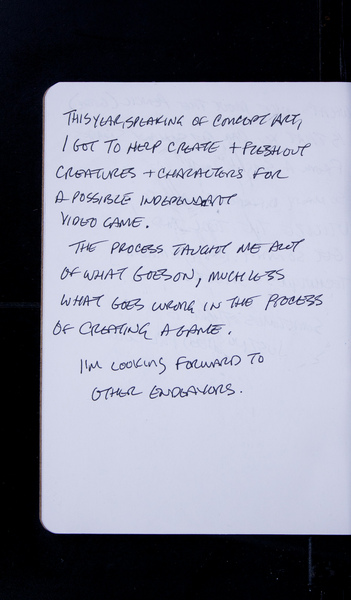 THIS YEAR, SPEAKING OF CONCEPT ART,
I GOT TO HELP CREATE + FLESH OUT
CREATURES + CHARACTERS FOR
A POSSIBLE INDEPENDANT
VIDEO GAME.
THE PROCESS TAUGHT ME ALOT
OF WHAT GOES ON, MUCH LESS
WHAT GOES WRONG IN THE PROCESS
OF CREATING A GAME.
I'M LOOKING FORWARD TO
OTHER ENDEAVORS.